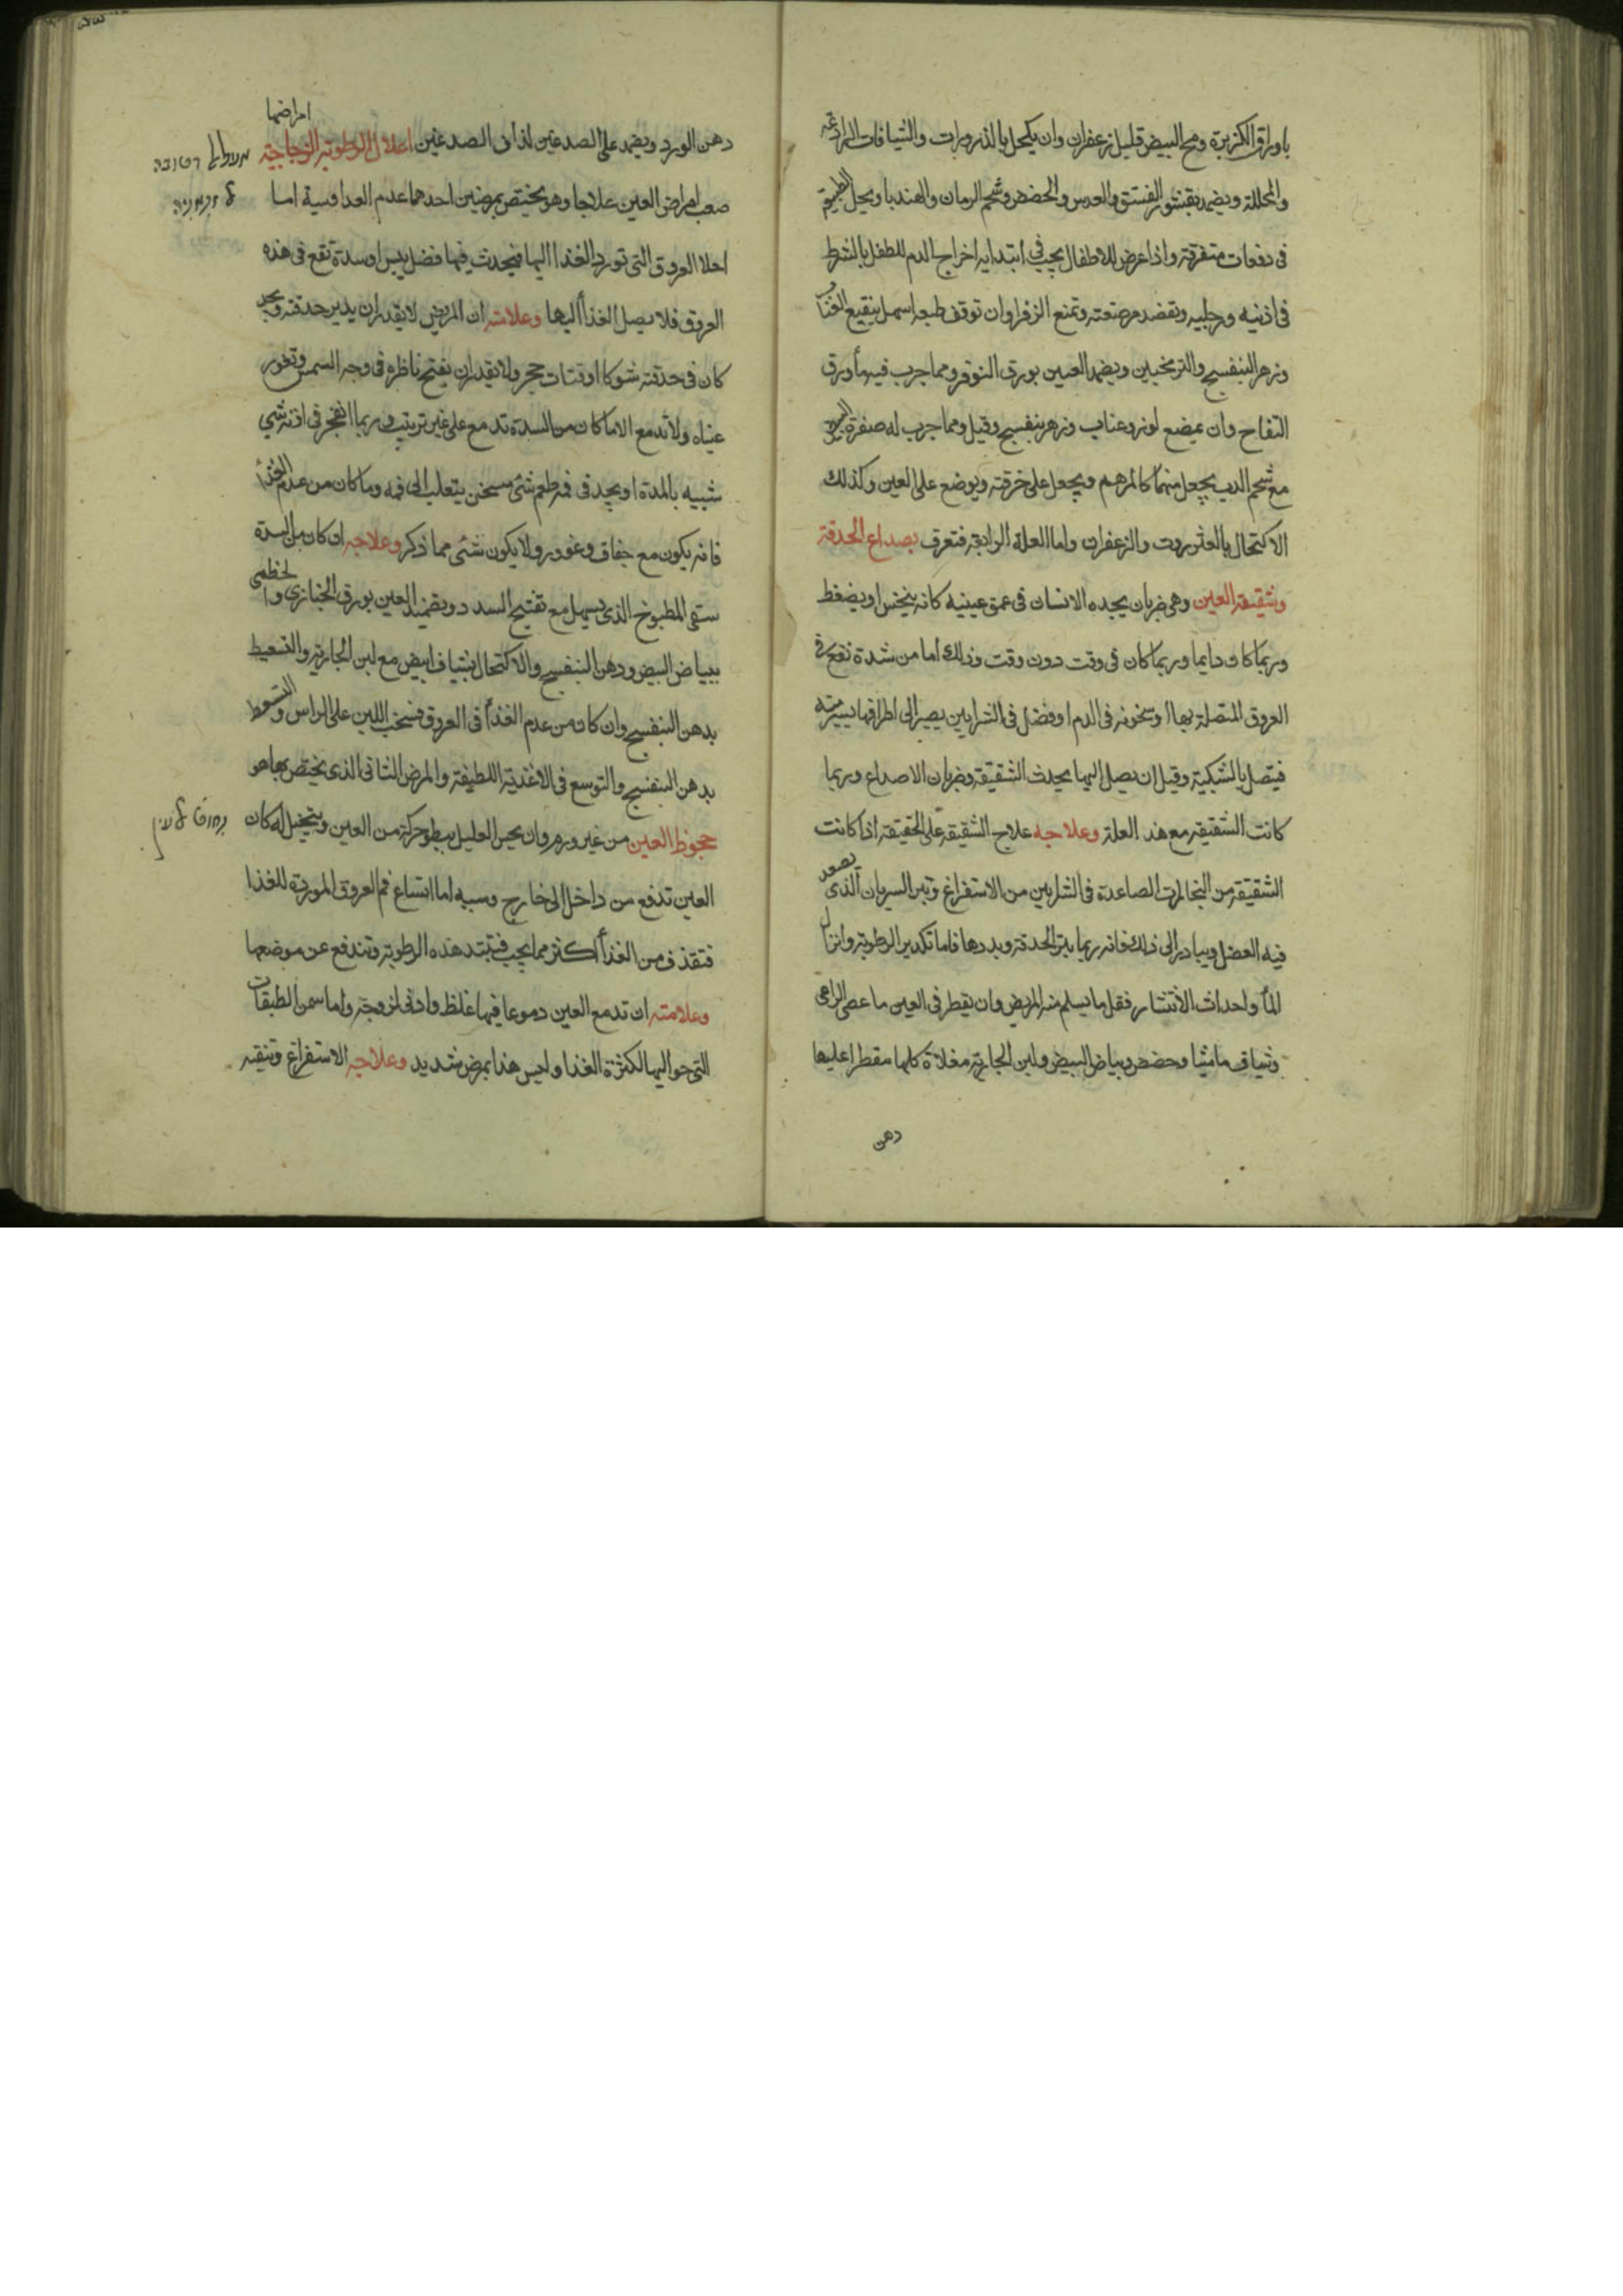 باوراق الكزبرة ومح البيض قليل زعفران وان يكحل بالذرورات والشيافات الرادعة
والمحللة ويضمد بقشور الفستق والعدس والحضض وشحم الرمان والهندبا ويحل الطبيعة
فى دفعات متفرقة واذا عرض للاطفال يجب فى ابتدايه اخراج الدم للطفل بالشرط
فى اذنيه ورجليه وتفصد مرضعته وتمنع الزفر وان توقف طبعه اسهل بنقيع العناب
وزهر البنفسج والترنجبين ويضمد العين بورق النوفر ومما جرب فيه ماء ورق
التفاح وان يمضع لوز وعناب وزهر بنفسج وقيل ومما جرب له صفرة البيض
مع شحم الدب يجعل منهما كالمرهم ويجعل على خرقة ويوضع على العين وكذلك
الاكتحال بالعنزروت والزعفران واما العلة الرابعة فتعرف بصداع الحدقة
وشقيقة العين وهى ضربان يجده الانسان فى عمق عينيه كانه ينخس او يضغط
وربما كان دايما وربما كان فى وقت دون وقت وذلك اما من شدة تقع فى
العروق المتصلة بها او سخونه فى الدم او فضل فى الشرايين يصير الى اطرافها يسير منه
فيتصل بالشبكية وقبل ان يصل اليها يحدث الشقيقة وضربان الاصداع وربما
كانت الشقيقة مع هذه العلة وعلاجه علاج الشقيقة على الحقيقة اذا كانت
الشقيقة من البخارات الصاعدة فى الشرايين من الاستفراغ وبتر السريان الذى يصعد
فيه الفضل ويبادر الى ذلك فانه ربما بثر الحدقة وبددها فاما تكدير الرطوبة وانزال
الماء واحداث الانتشار فقل ما يسلم منه المريض وان يقطر فى العين ماء عصى الراعى
وشياف ماميثا وحضض وبياض البيض ولبن الجارية مغلاة كلها مقطرا عليها
دهن
امراضها
دهن الورد ويضمد على الصدغين لذاق الصدغين اعلال الرطوبة الزجاجية
صعب امراض العين علاجا وهو يختص بمرضين احدهما عدم الغدا وسببه اما
اخلا العروق التى تورد الغذا اليها فيحدث فيها فضل يبس او سدة تقع فى هذه
العروق فلا يصل الغذا اليها وعلامته ان المريض لا يقدر ان يدير حدقته ويجد
كان فى حدقته شوكا او فتات حجر ولا يقدر ان يفتح ناظره فى وجه الشمس وتغور
عيناه ولا تدمع الا ما كان من السدة تدمع على غير ترتيب وربما انفجر فى اذنه شى
شبيه بالمدة او يجد فى فمه طعم شى مسخن يتعلب الى فمه وما كان من عدم الغذا
فانه يكون مع جفاف وغوور ولا يكون شى مما ذكر وعلاجه ان كان من السدة
سقى المطبوخ الذى يسهل مع تفتيح السدد وتضميد العين بورق الخبازى والخطمى
ببياض البيض ودهن البنفسج والاكتحال بشياف ابيض مع لبن الجارية والتسعيط
بدهن البنفسج وان كان من عدم الغذا فى العروق فسخب اللبن على الراس والتسعوط
بدهن البنفسج والتوسع فى الاغذية اللطيفة والمرض الثانى الذى يختص بها هو
جحوظ العين من غير ورم وان يحس العليل ببطو حركة من العين ويتخيل له كان
العين تدفع من داخل الى خارج وسببه اما اتساع فم العروق الموردة للغذا
فتقذف من الغذا اكثر مما يجب فتبتد هذه الرطوبة وتندفع عن موضعها
وعلامته ان تدمع العين دموعا فيها غلظ وادنى لزوجة واما سمن الطبقات
التى حواليها لكثرة الغذا وليس هذا بمرض شديد وعلاجه الاستفراغ وتنقيه